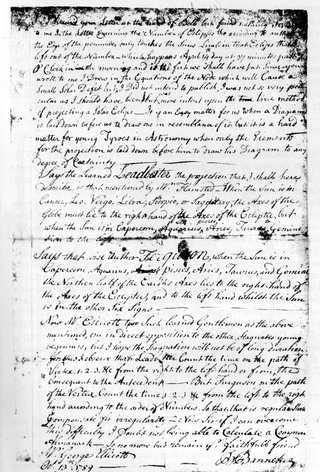 Received your Letter at the hand of but found nothing
to me In the Letter Examining the Number of Eclipses tho according to authority
the Edge of the penumbra only touches the Suns Limb in that Eclips that I
left out of the Number which happens April 14th day at 37 minutes past
O'Clock in the morning and is the first we shall have but since you
wrote to me I drew in the Equations of the Node which will Cause a
Small Solar Defet but as I did not intend to publish I was not so very peti
cular as I should have been but more intent upon the true method
of projecting a Solar Eclips It is an Easy matter for us when a Diagram
is laid down before us to draw one in resemblance of it but it is a hard
matter for young Tyroes in Astronomy when only the Elements
for the projection is laid down before him to draw his Diagram to any
degree of Certainty
Says the Learned Leadbetter the projection that I shall here
describe is that mentioned by Mr Flamsted When the Sun is in
Cancer, Leo, Virgo, Libra, Scorpio or Sagittary the Axes of the
Globe must lie to the right hand of the Axes of the Ecliptic but
when the Sun is in Capercorn Aquarius, Pisces, Aries, Taurus, Gemini
then to the left
Says that wise Author Ferguson, when the Sun is in
Capercorn, Aquarius, Pisces, Aries, Taurus, and Gemeni
the Northern half of the Earths Axes lies to the right hand of
the Axes of the Ecliptic, and to the left hand whilst the Sun
is in the other Six Signs
Now Mr Ellicott two Such learned Gentlemen as the above
mentioned, one in direct opposition to the other, Stagnates young
beginners, but I hope the Stagnation will not be of long duration,
for this I observe that Leadbetter Counts the time on the path of
Vertex 1. 2. 3. &c from the right to the left hand or from the
Consequent to the Antecedent — But Ferguson on the path
of the Vertex Counts the time 1. 2. 3. &c from the left to the right
hand according to the order of Numbers So that that is regular Shall
Compensate for irregularity Now Sir if I can overcome
this difficulty I Doubt not being able to Calculate a Common
Almanack — Sir no more but remain yr faithfull friend
Mr George Ellicott
B. Banneker
Oct. 13. 1789